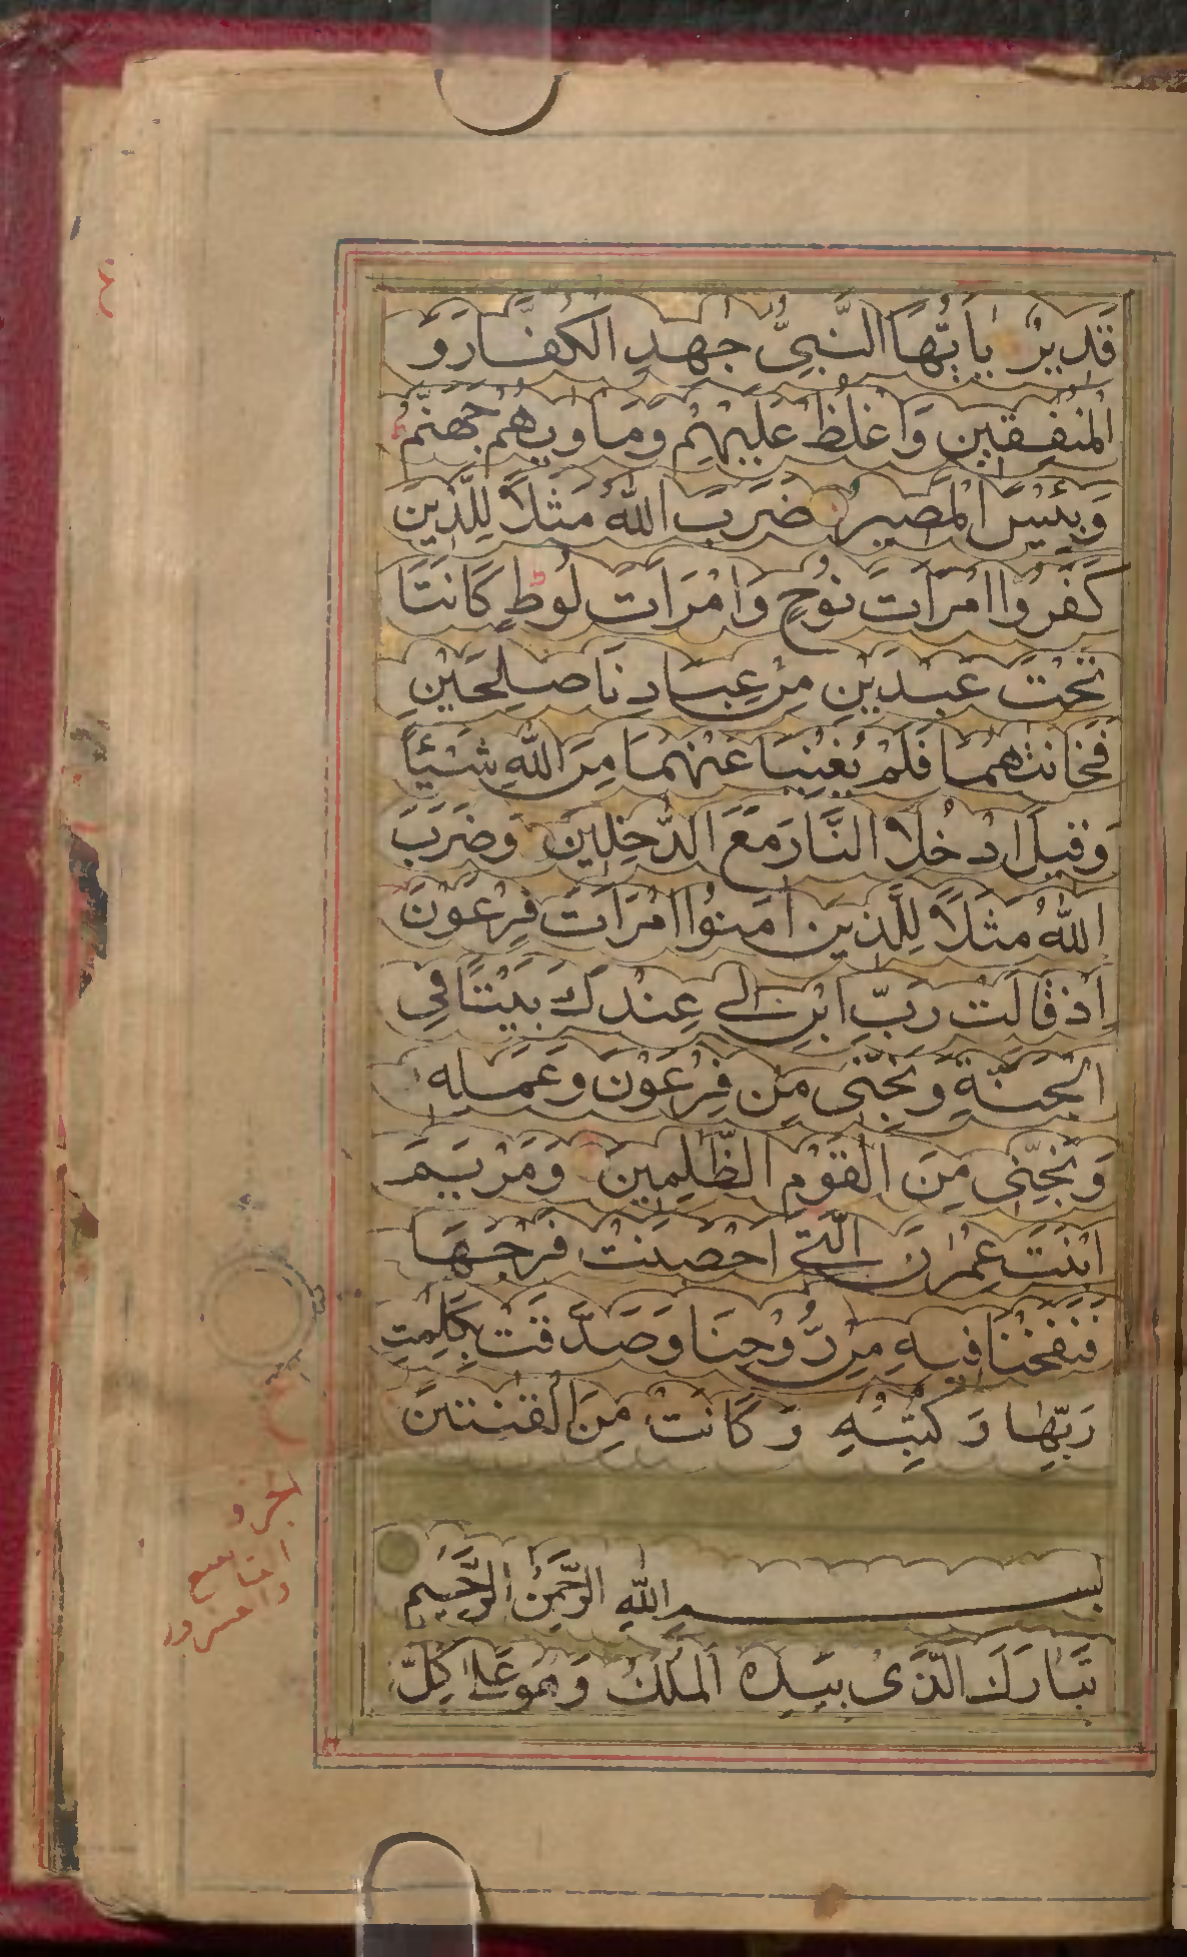 قَدِيرٌ يٰاَيُّهَا النَّبِيُّ جٰهِدِ الْكُفَّارَ وَ
الْمُنٰفِقِينَ وَاغْلُظْ عَلَيْهِمْ وَمَاْوٰيهُمْ جَهَنَّمُ
وَبِئْسَ الْمَصِيرُ ضَرَبَ اللّٰهُ مَثَلًا لِلَّذِينَ
كَفَرُوا امْرَاَتَ نُوحٍ وَامْرَاَتَ لُوطٍ كَانَتَا
تَحْتَ عَبْدَيْنِ مِنْ عِبَادِنَا صَالِحَيْنِ
فَخَانَتٰهُمَا فَلَمْ يُغْنِيَا عَنْهُمَا مِنَ اللّٰهِ شَيْئًا
وَقِيلَ ادْخُلَا النَّارَ مَعَ الدّٰخِلِينَ وَضَرَبَ
اللّٰهُ مَثَلًا لِلَّذِينَ اٰمَنُوا امْرَاَتَ فِرْعَوْنَ
اِذْ قَالَتْ رَبِّ ابْنِ لِي عِنْدَكَ بَيْتًا فِي
الْجَنَّةِ وَنَجِّنِي مِنْ فِرْعَوْنَ وَعَمَلِهِ
وَنَجِّنِي مِنَ الْقَوْمِ الظّٰلِمِينَ وَمَرْيَمَ
ابْنَتَ عِمْرٰنَ الَّتِي اَحْصَنَتْ فَرْجَهَا
فَنَفَخْنَا فِيهِ مِنْ رُّوحِنَا وَصَدَّقَتْ بِكَلِمٰتِ
رَبِّهَا وَكُتُبِهِ وَكَانَتْ مِنَ الْقٰنِتِينَ
بِسْمِ اللّٰهِ الرَّحْمٰنِ الرَّحِيمِ
تَبَارَكَ الَّذِي بِيَدِهِ الْمُلْكُ وَهُوَ عَلٰى كُلِّ